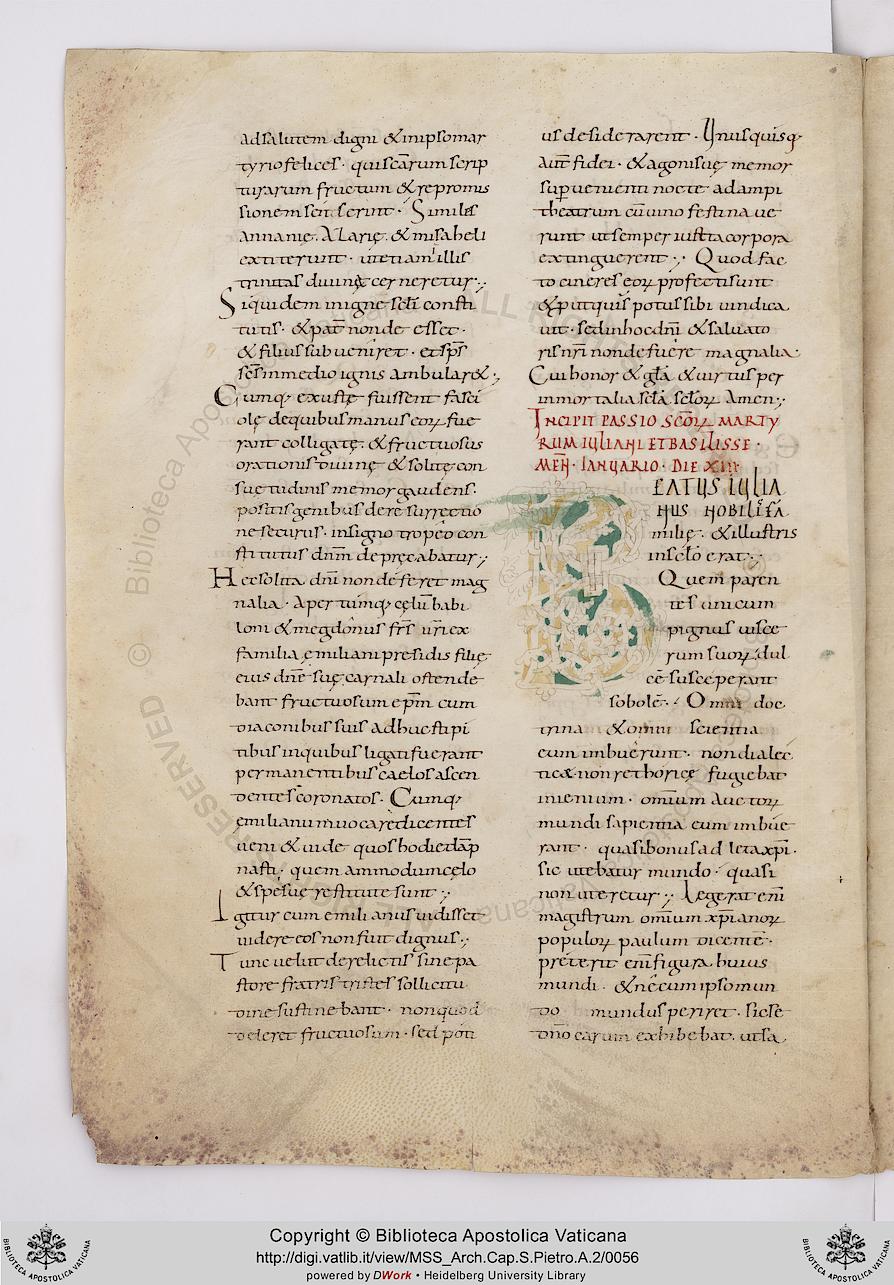 adsalutem digni & inipsomar
tyrio felices · qui scārum scrip
turarum fructum & repromis
sionem sen serint · Similes
annanię · Azarię · & misaheli
extiterunt · ut etiam illis
trinitas diuina cerneretur ·,
Siquidem inigne sclī consti
tutis · & pat̄ non deesset ·
& filius subueniret · et sps̄
scs̄ inmedio ignis ambular& ·,
Cumq; exustę fuissent fasci
olę dequibus manus eoꝝ fue
rant colligatę · & fructuosus
orationis diuinę & solitę con
suetudinis memor gaudens ·
positis genibus de resurrectio
ne securus · insigno tropeo con
stitutus dnm̄ deprecabatur ·,
Hec solita dnī non deferet mag
nalia · Apertumq; cęlū babi
loni & megdonius frs̄ nr̄i ex
familia ęmiliani presidis filię
eius dnē suę carnali ostende
bant fructuosum epm̄ cum
diaconibus suis adhuc stipi
tibus inquibus ligati fuerant
permanentibus caelos ascen
dentes coronatos · Cumq;
ęmilianum uocaret dicentes
ueni & uide quos hodie dāp
nasti · quem ammodum cęlo
& spei suę restitute sunt ·,
Igitur cum emilianus uidisset
uidere eos non fuit dignus ·,
Tunc uelut derelictis sine pa
store fratris tristes sollicitu
dine sustinebant · non quod
doleret fructuosum · sed poti
us desiderarent · Unusquisq;
aut̄ fidei · & agonis uę memor
superuenienti nocte ad ampi
theatrum cū uino festinaue
runt ut semper iusta corpora
extinguerent ·, Quod fac
to cineres eoꝝ profecti sunt
& put quisquis potus sibi uindica
uit · sed in hoc dnī & saluato
ris nr̄i non defuere magnalia ·
Cui honor & glā & uirtus per
inmortalia sclā sclōꝝ Amen ·,
INCIPIT PASSIO SCŌꝜ MARTY
RUM IULIANI ET BASILISSE ·
MEN̄ · IANUARIO · DIE XIII
BEATUS IULIA
NUS NOBILI FĀ
milię · & illustris
insclō erat ·,
Quem paren
tes unicum
pignus uisce
rum suoꝝ dul
cē susceperant
sobolē · Omni doc
trina & omni scientia
eum imbuerunt · non dialec
tica non rethorice fugiebat
inienium · omium auctoꝝ
mundi sapientia eum imbue
rant · quasi bonus adleta xpī ·
sic utebatur mundo · quasi
non uteretur ·, Legerat enī
magistrum omium xpianoꝝ
populoꝝ paulum dicentē ·
preterit enī figura huius
mundi · & ne cum ipso mun
do mundus periret · sic se
dnō carum exhibebat · ut sa
Copyright © Biblioteca Apostolica Vaticana
http://digi.vatlib.it/view/MSS_Arch.Cap.S.Pietro.A.2/0056
powered by DWork • Heidelberg University Library